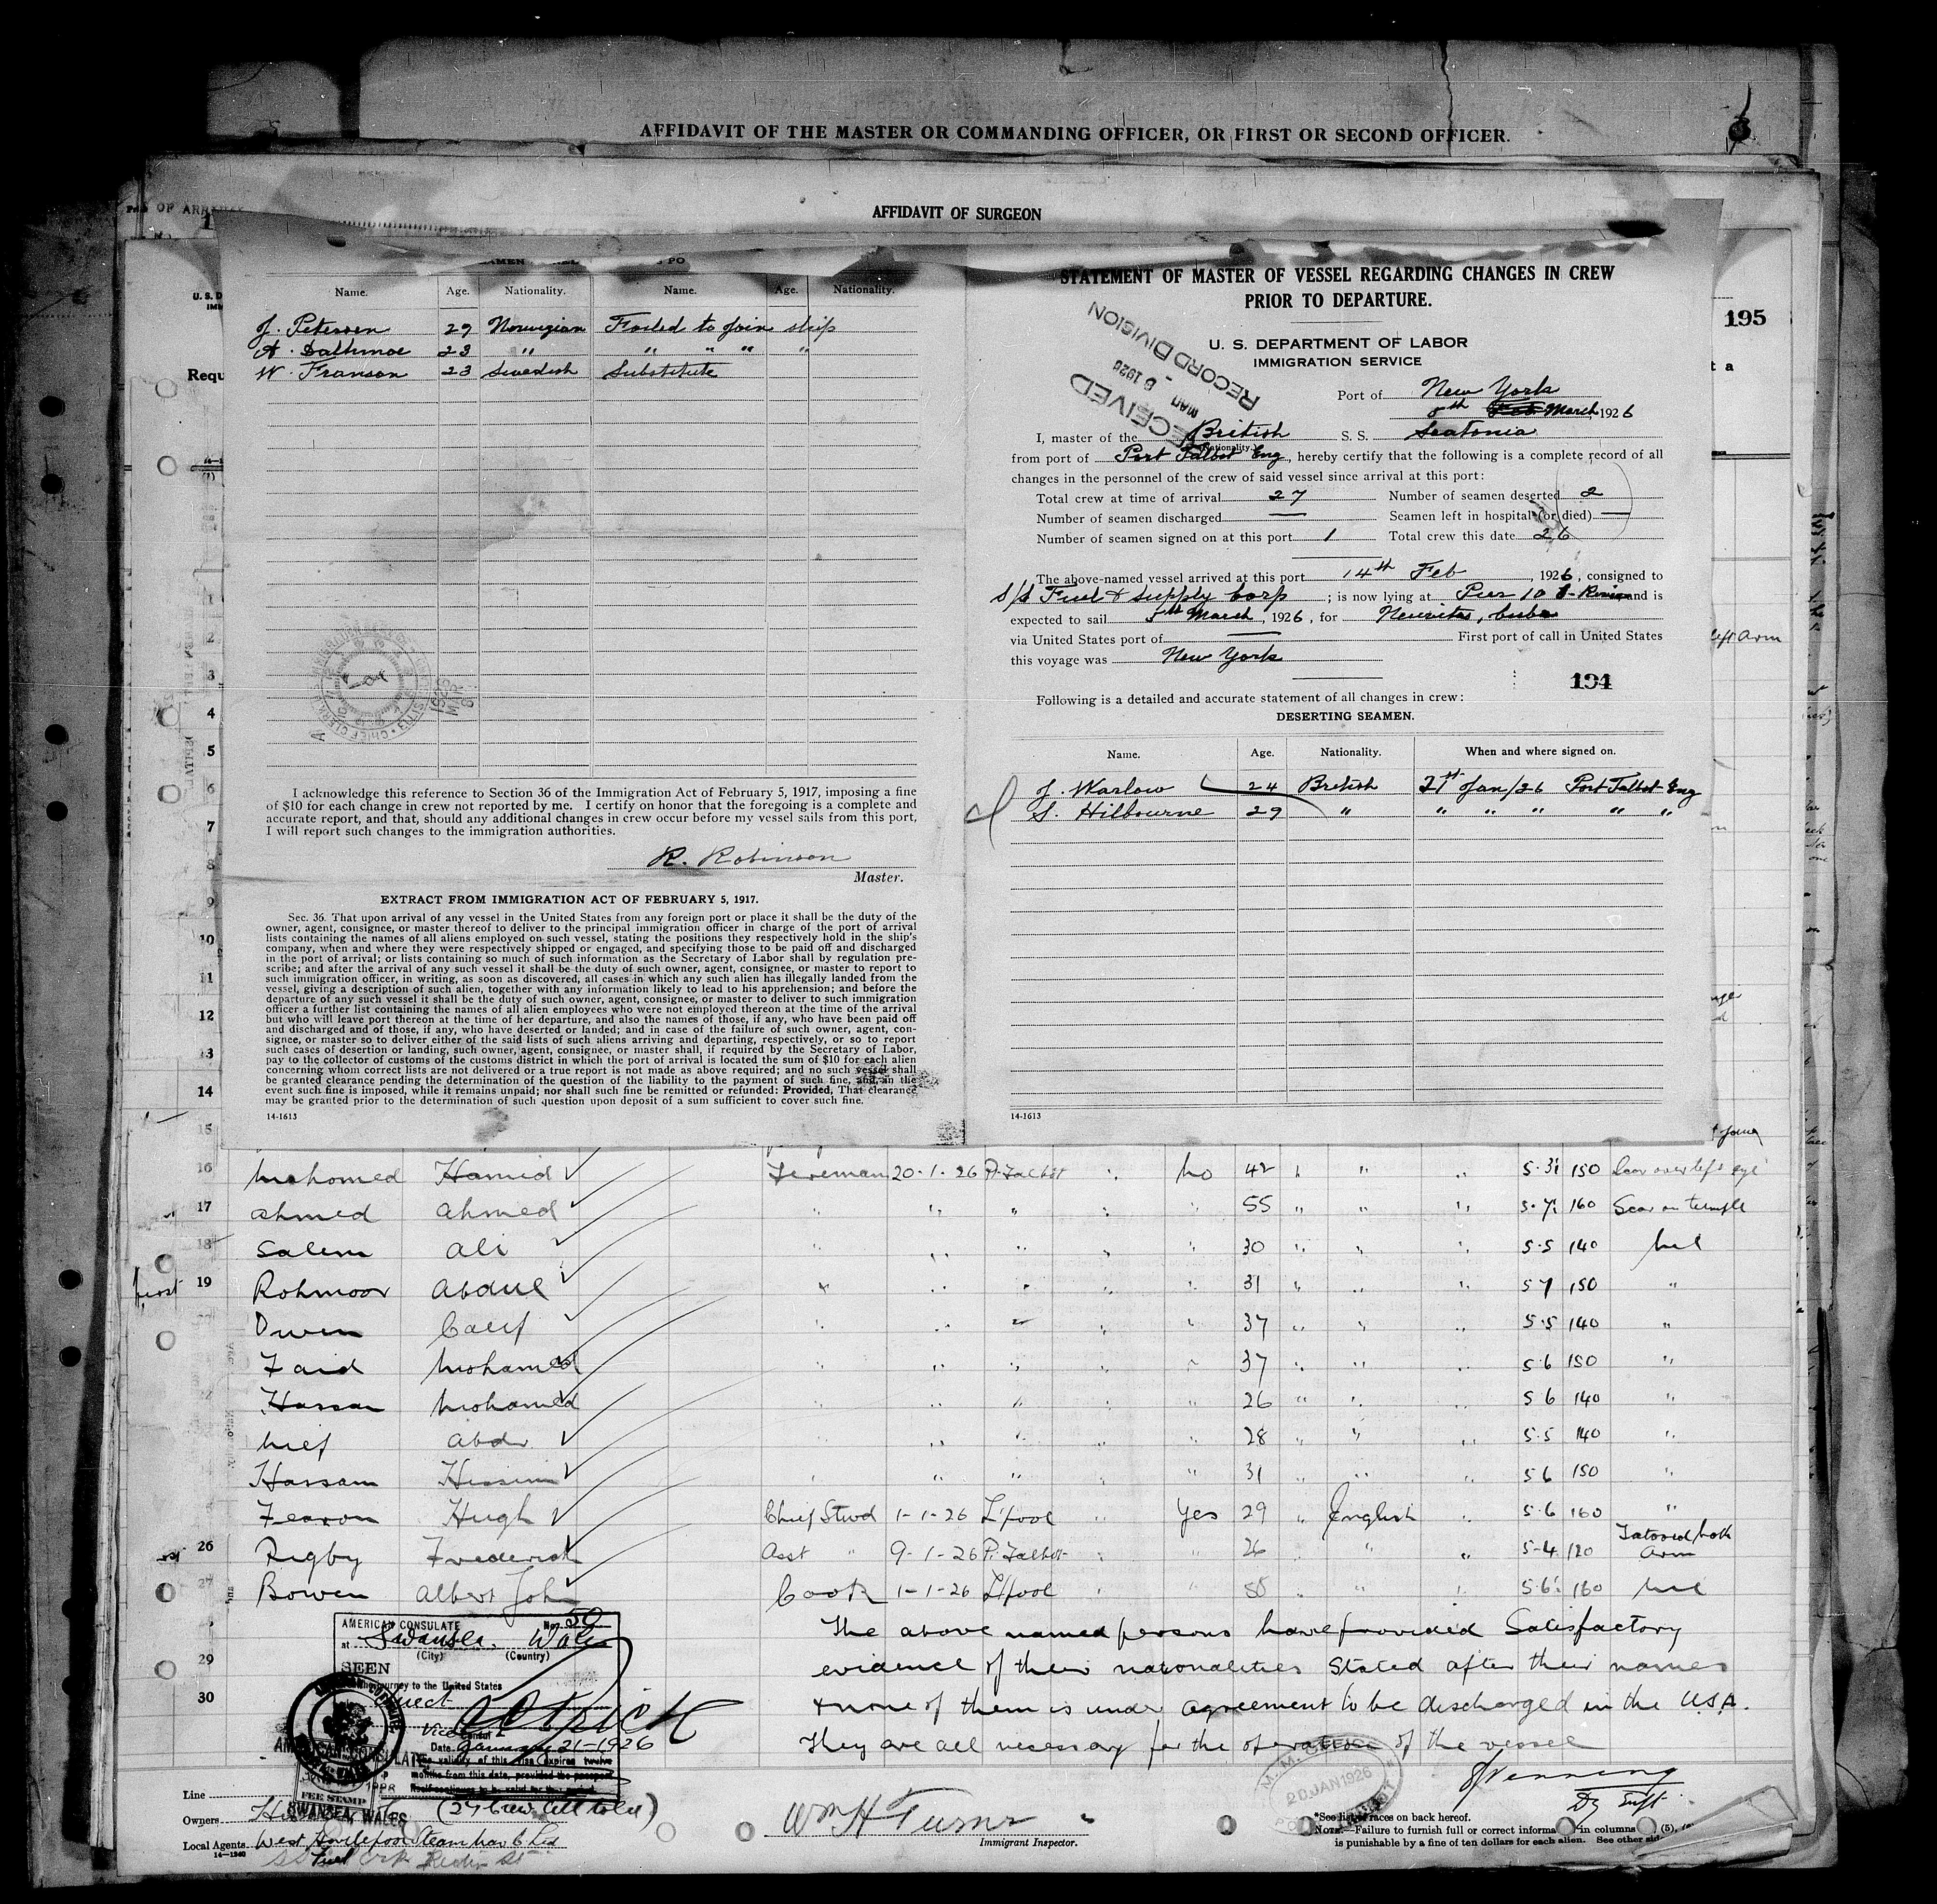 AFFIDAVIT OF THE MASTER OR COMMANDING OFFICER, OR FIRST OR SECOND OFFICER.
AFFIDAVIT OF SURGEON
Name. Age. Nationality. Name. Age. Nationality.
J. Petersen 29 Norwegian Failed to join ship
A. Dalhmoe 23 " " " " "
W. Franson 23 Swedish Substitute
I acknowledge this reference to Section 36 of the Immigration Act of February 5, 1917, imposing a fine
of $10 for each change in crew not reported by me. I certify on honor that the foregoing is a complete and
accurate report, and that, should any additional changes in crew occur before my vessel sails from this port,
I will report such changes to the immigration authorities.
R. Robinson
Master.
EXTRACT FROM IMMIGRATION ACT OF FEBRUARY 5, 1917.
Sec. 36. That upon arrival of any vessel in the United States from any foreign port or place it shall be the duty of the
owner, agent, consignee, or master thereof to deliver to the principal immigration officer in charge of the port of arrival
lists containing the names of all aliens employed on such vessel, stating the positions they respectively hold in the ship's
company, when and where they were respectively shipped or engaged, and specifying those to be paid off and discharged
in the port of arrival; or lists containing so much of such information as the Secretary of Labor shall by regulation pre-
scribe; and after the arrival of any such vessel it shall be the duty of such owner, agent, consignee, or master to report to
such immigration officer, in writing, as soon as discovered, all cases in which any such alien has illegally landed from the
vessel, giving a description of such alien, together with any information likely to lead to his apprehension; and before the
departure of any such vessel it shall be the duty of such owner, agent, consignee, or master to deliver to such immigration
officer a further list containing the names of all alien employees who were not employed thereon at the time of the arrival
but who will leave port thereon at the time of her departure, and also the names of those, if any, who have been paid off
and discharged and of those, if any, who have deserted or landed; and in case of the failure of such owner, agent, con-
signee, or master so to deliver either of the said lists of such aliens arriving and departing, respectively, or so to report
such cases of desertion or landing, such owner, agent, consignee, or master shall, if required by the Secretary of Labor,
pay to the collector of customs of the customs district in which the port of arrival is located the sum of $10 for each alien
concerning whom correct lists are not delivered or a true report is not made as above required; and no such vessel shall
be granted clearance pending the determination of the question of the liability to the payment of such fine, and, in the
event such fine is imposed, while it remains unpaid; nor shall such fine be remitted or refunded: Provided, That clearance
may be granted prior to the determination of such question upon deposit of a sum sufficient to cover such fine.
14-1613
STATEMENT OF MASTER OF VESSEL REGARDING CHANGES IN CREW
PRIOR TO DEPARTURE.
RECEIVED
MAR - 8 1926
RECORD DIVISION
U. S. DEPARTMENT OF LABOR
IMMIGRATION SERVICE
Port of New York
5th March 1926
I, master of the British S. S. Seatonia
(Nationality.)
from port of Port Talbot Eng, hereby certify that the following is a complete record of all
changes in the personnel of the crew of said vessel since arrival at this port:
Total crew at time of arrival 27 Number of seamen deserted 2
Number of seamen discharged — Seamen left in hospital (or died) —
Number of seamen signed on at this port 1 Total crew this date 26
The above-named vessel arrived at this port 14th Feb, 1926, consigned to
S/S Fuel & Supply Corp; is now lying at Pier 10 and is
expected to sail 5th March, 1926, for Neuvitas, Cuba
via United States port of — First port of call in United States
this voyage was New York
194
Following is a detailed and accurate statement of all changes in crew:
DESERTING SEAMEN.
Name. Age. Nationality. When and where signed on.
J. Warlow 24 British 21st Jan/26 Port Talbot Eng
S. Hilbourne 29 " " " " " "
14-1613
195
Requ
1
2
3
4
5
6
7
8
9
10
11
12
13
14
15
16 Mohomed Hamid Fireman 20-1-26 P. Talbot " No 42 " " " 5·3½ 150 Scar over left eye
17 Ahmed Ahmed " " " " " 55 " " " 5·7½ 160 Scar on temple
18 Salem Ali " " " " " 30 " " " 5·5 140 Nil
19 Rohmoor Abdul " " " " " 31 " " " 5 7 150 "
Owen Calif " " " " " 37 " " " 5·5 140 "
Faid Mohamed " " " " " 37 " " " 5·6 150 "
Hassan Mohamed " " " " " 26 " " " 5 6 140 "
Nief Abdi " " " " " 28 " " " 5·5 140 "
Hassam Hissim " " " " " 31 " " " 5 6 150 "
Fearon Hugh Chief Stwd 1-1-26 L'pool " Yes 29 " English " 5·6 160 "
26 Rigby Frederick Asst " 9-1-26 P. Talbot " " 26 " " " 5-4 120 Tatooed both Arm
27 Bowen Albert John Cook 1-1-26 L'pool " " 55 " " " 5·6½ 160 Nil
The above named persons have provided Satisfactory
29 evidence of their nationalities stated after their names
30 & none of them is under agreement to be discharged in the U.S.A.
They are all necessary for the operation of the vessel
AMERICAN CONSULATE No. 50
at Swansea, Wales
(City) (Country)
SEEN
journey to the United States
Direct
Vice Consul
Date January 21-1926
The validity of this visa expires twelve
months from this date, provided the passport
itself continues to be valid for that period.
AMERICAN CONSULATE
FEE STAMP
SWANSEA, WALES
M. M. OFFICE
20 JAN 1926
Dy Supt.
Line
Owners (27 Crew all told)
Local Agents West Hartlepool Steam Nav Co Ltd
14-1240
Wm H Turner
Immigrant Inspector.
*See list of races on back hereof.
NOTE.—Failure to furnish full or correct informa in columns (5),
is punishable by a fine of ten dollars for each alien. See other sid